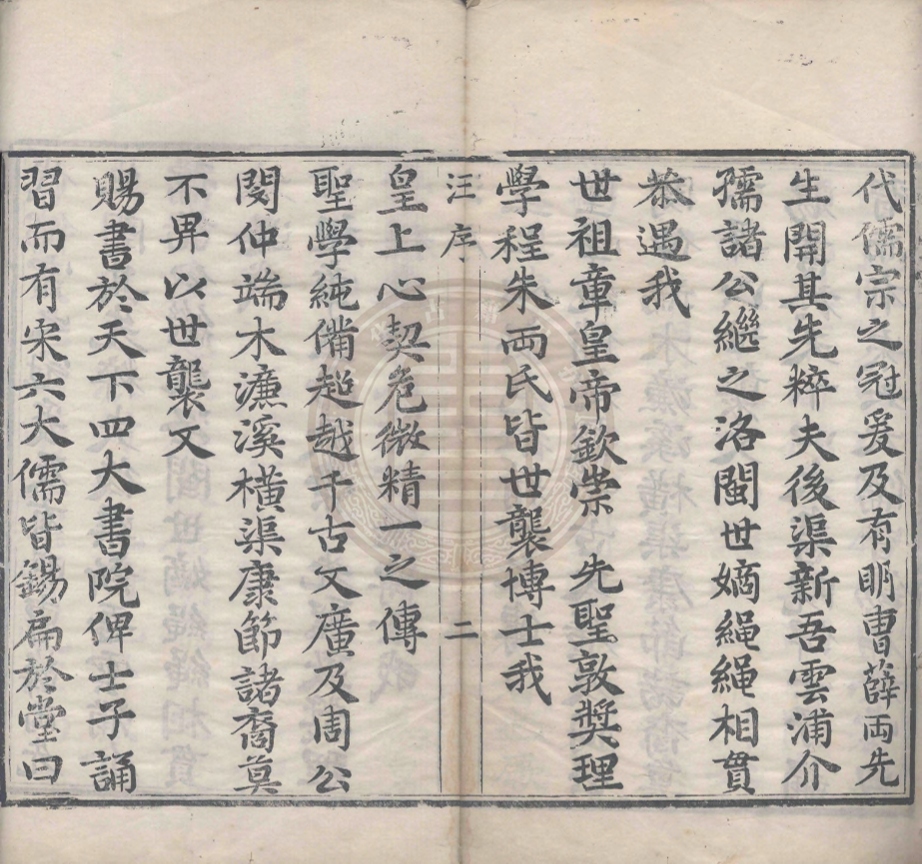 代儒宗之冠爰及有明曹薛两先
生開其先粹夫後渠新吾雲浦介
孺諸公繼之洛閩世嫡繩繩相貫
恭遇我
世祖章皇帝欽崇先聖敦奬理
學程朱两氏皆世襲博士我
汪序
二
皇上心契危微精一之傳
聖學純備超越千古又廣及周公
閔仲端木濂溪橫渠康節諸裔莫
不畀以世襲又
賜書於天下四大書院俾士子誦
習而有宋六大儒皆錫扁於堂曰